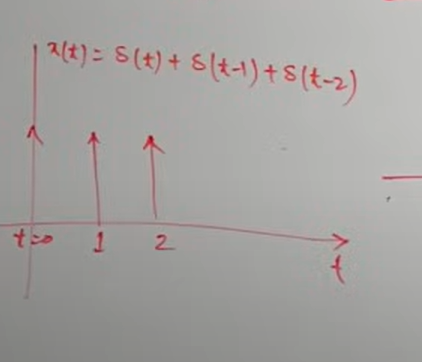 x(t) = δ(t) + δ(t-1) + δ(t-2)
t=0 1 2
t